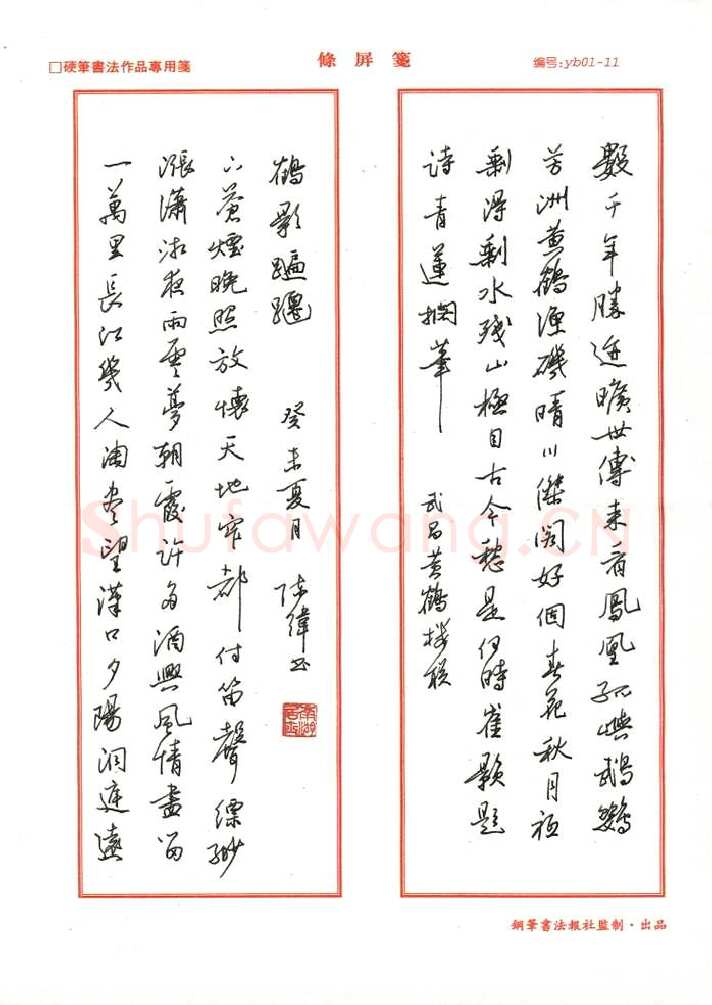 □硬筆書法作品專用箋
條屏箋
编号:yb01-11
數千年勝迹曠世傳来看鳳凰孤嶼鵡鸚
芳洲黄鶴漁磯晴川傑阁好個春花秋月祗
剩得剩水殘山極目古今愁是何時崔顥題
詩青蓮擱筆
武昌黄鶴樓联
一萬里長江幾人淘盡望漢口夕陽洞庭遠
漲瀟湘夜雨雲夢朝霞許多酒興風情盡留
下蒼煙晚照放懷天地窄都付笛聲縹緲
鶴影蹁躚
癸未夏月 陈緯书
鋼筆書法報社監制·出品
Shufawang.CN